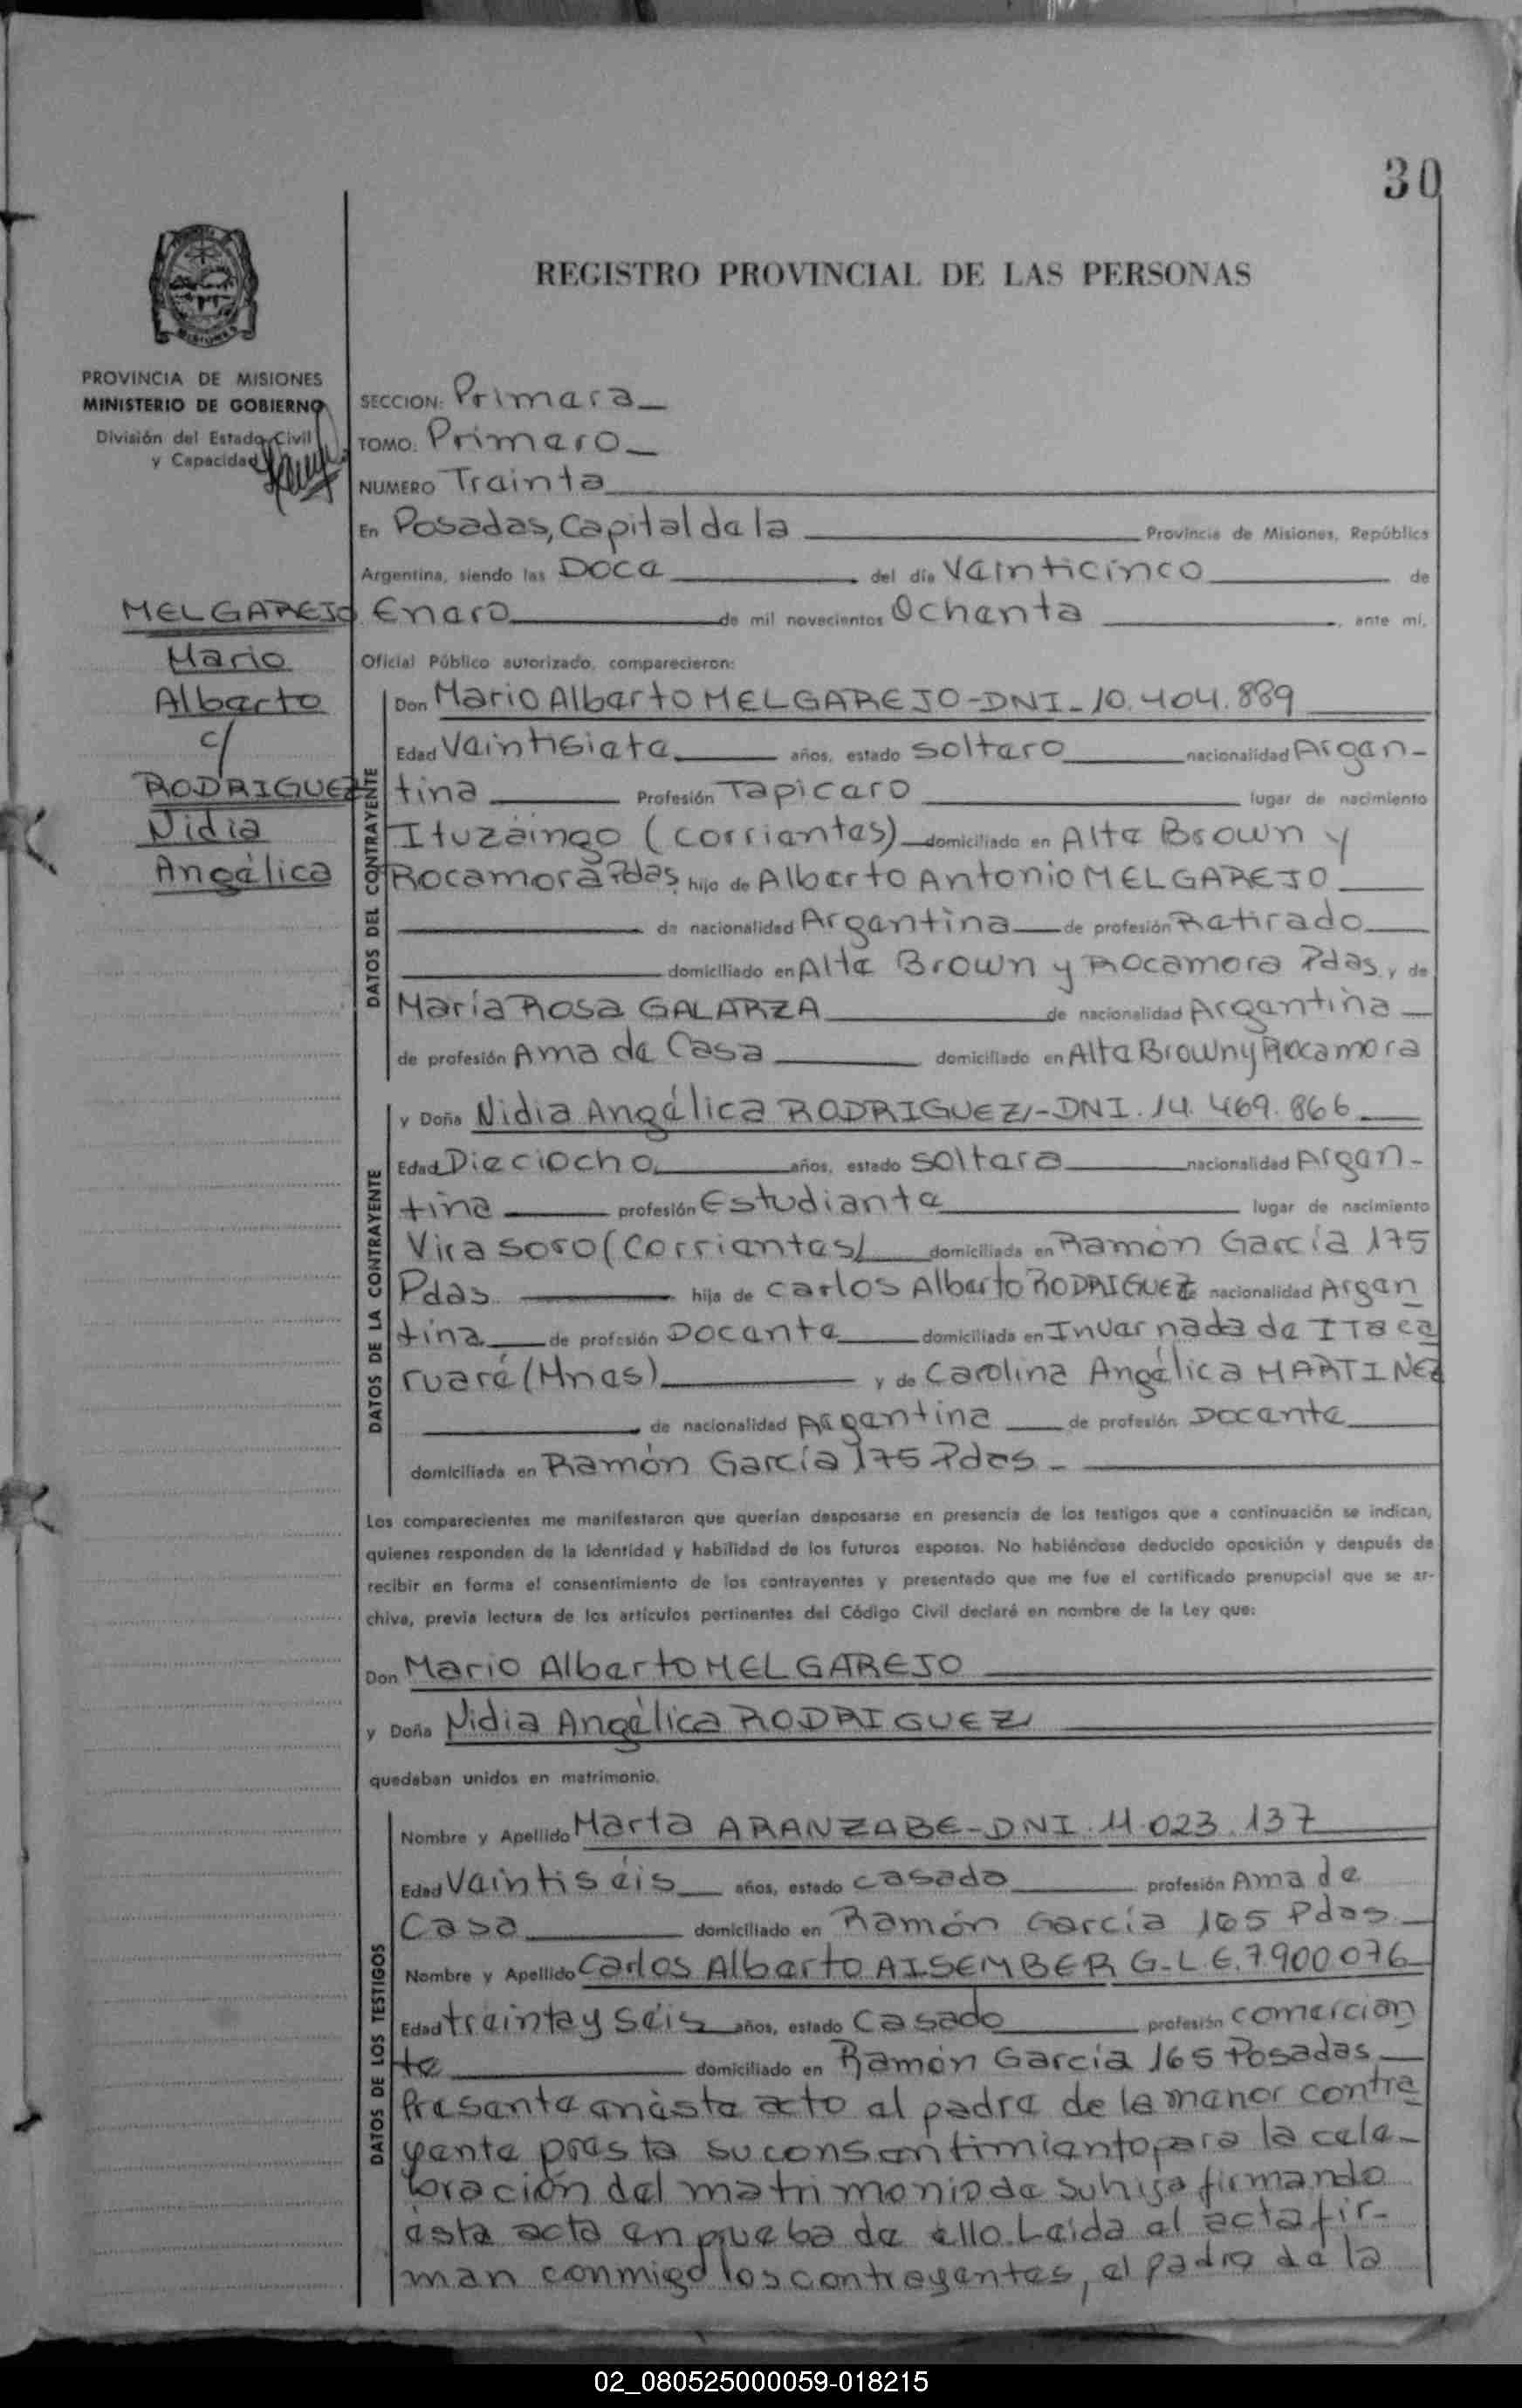 30
REGISTRO PROVINCIAL DE LAS PERSONAS
PROVINCIA DE MISIONES
MINISTERIO DE GOBIERNO
División del Estado Civil
y Capacidad
SECCION: Primera
TOMO: Primero
NUMERO Treinta
En Posadas, Capital de la Provincia de Misiones, República
Argentina, siendo las Doce del día Veinticinco de
Enero de mil novecientos Ochenta, ante mí,
Oficial Público autorizado, comparecieron:
MELGAREJO
Mario
Alberto
c/
RODRIGUEZ
Nidia
Angélica
DATOS DEL CONTRAYENTE
Don Mario Alberto MELGAREJO-DNI-10.404.889
Edad Veintisiete años, estado soltero nacionalidad Argen-
tina Profesión Tapicero lugar de nacimiento
Ituzaingo (corrientes) domiciliado en Alte Brown y
Rocamora Pdas, hijo de Alberto Antonio MELGAREJO
de nacionalidad Argentina de profesión Retirado
domiciliado en Alte Brown y Rocamora Pdas, y de
María Rosa GALARZA de nacionalidad Argentina
de profesión Ama de Casa domiciliado en Alte Brown y Rocamora
DATOS DE LA CONTRAYENTE
y Doña Nidia Angélica RODRIGUEZ-DNI.14.469.866
Edad Dieciocho años, estado soltera nacionalidad Argen-
tina profesión Estudiante lugar de nacimiento
Vira soro (Corrientes) domiciliada en Ramón García 175
Pdas. hija de Carlos Alberto RODRIGUEZ de nacionalidad Argen
tina de profesión Docente domiciliada en Invernada de Itaca
ruaré (Mnes) y de Carolina Angélica MARTINEZ
de nacionalidad Argentina de profesión Docente
domiciliada en Ramón García 175 Pdas -
Los comparecientes me manifestaron que querían desposarse en presencia de los testigos que a continuación se indican,
quienes responden de la identidad y habilidad de los futuros esposos. No habiéndose deducido oposición y después de
recibir en forma el consentimiento de los contrayentes y presentado que me fue el certificado prenupcial que se ar-
chiva, previa lectura de los artículos pertinentes del Código Civil declaré en nombre de la Ley que:
Don Mario Alberto MELGAREJO
y Doña Nidia Angélica RODRIGUEZ
quedaban unidos en matrimonio.
DATOS DE LOS TESTIGOS
Nombre y Apellido Marta ARANZABE-DNI.11.023.137
Edad Veintiséis años, estado casado profesión Ama de
Casa domiciliado en Ramón García 165 Pdas.
Nombre y Apellido Carlos Alberto AISEMBERG-L.E.7.900.076
Edad treinta y séis años, estado Casado profesión comercian
te domiciliado en Ramón García 165 Posadas
Presente en éste acto el padre de la menor contra
yente presta su consentimiento para la cele-
bración del matrimonio de su hija firmando
ésta acta en prueba de ello. Leída el acta fir-
man conmigo los contrayentes, el padre de la
02_080525000059-018215